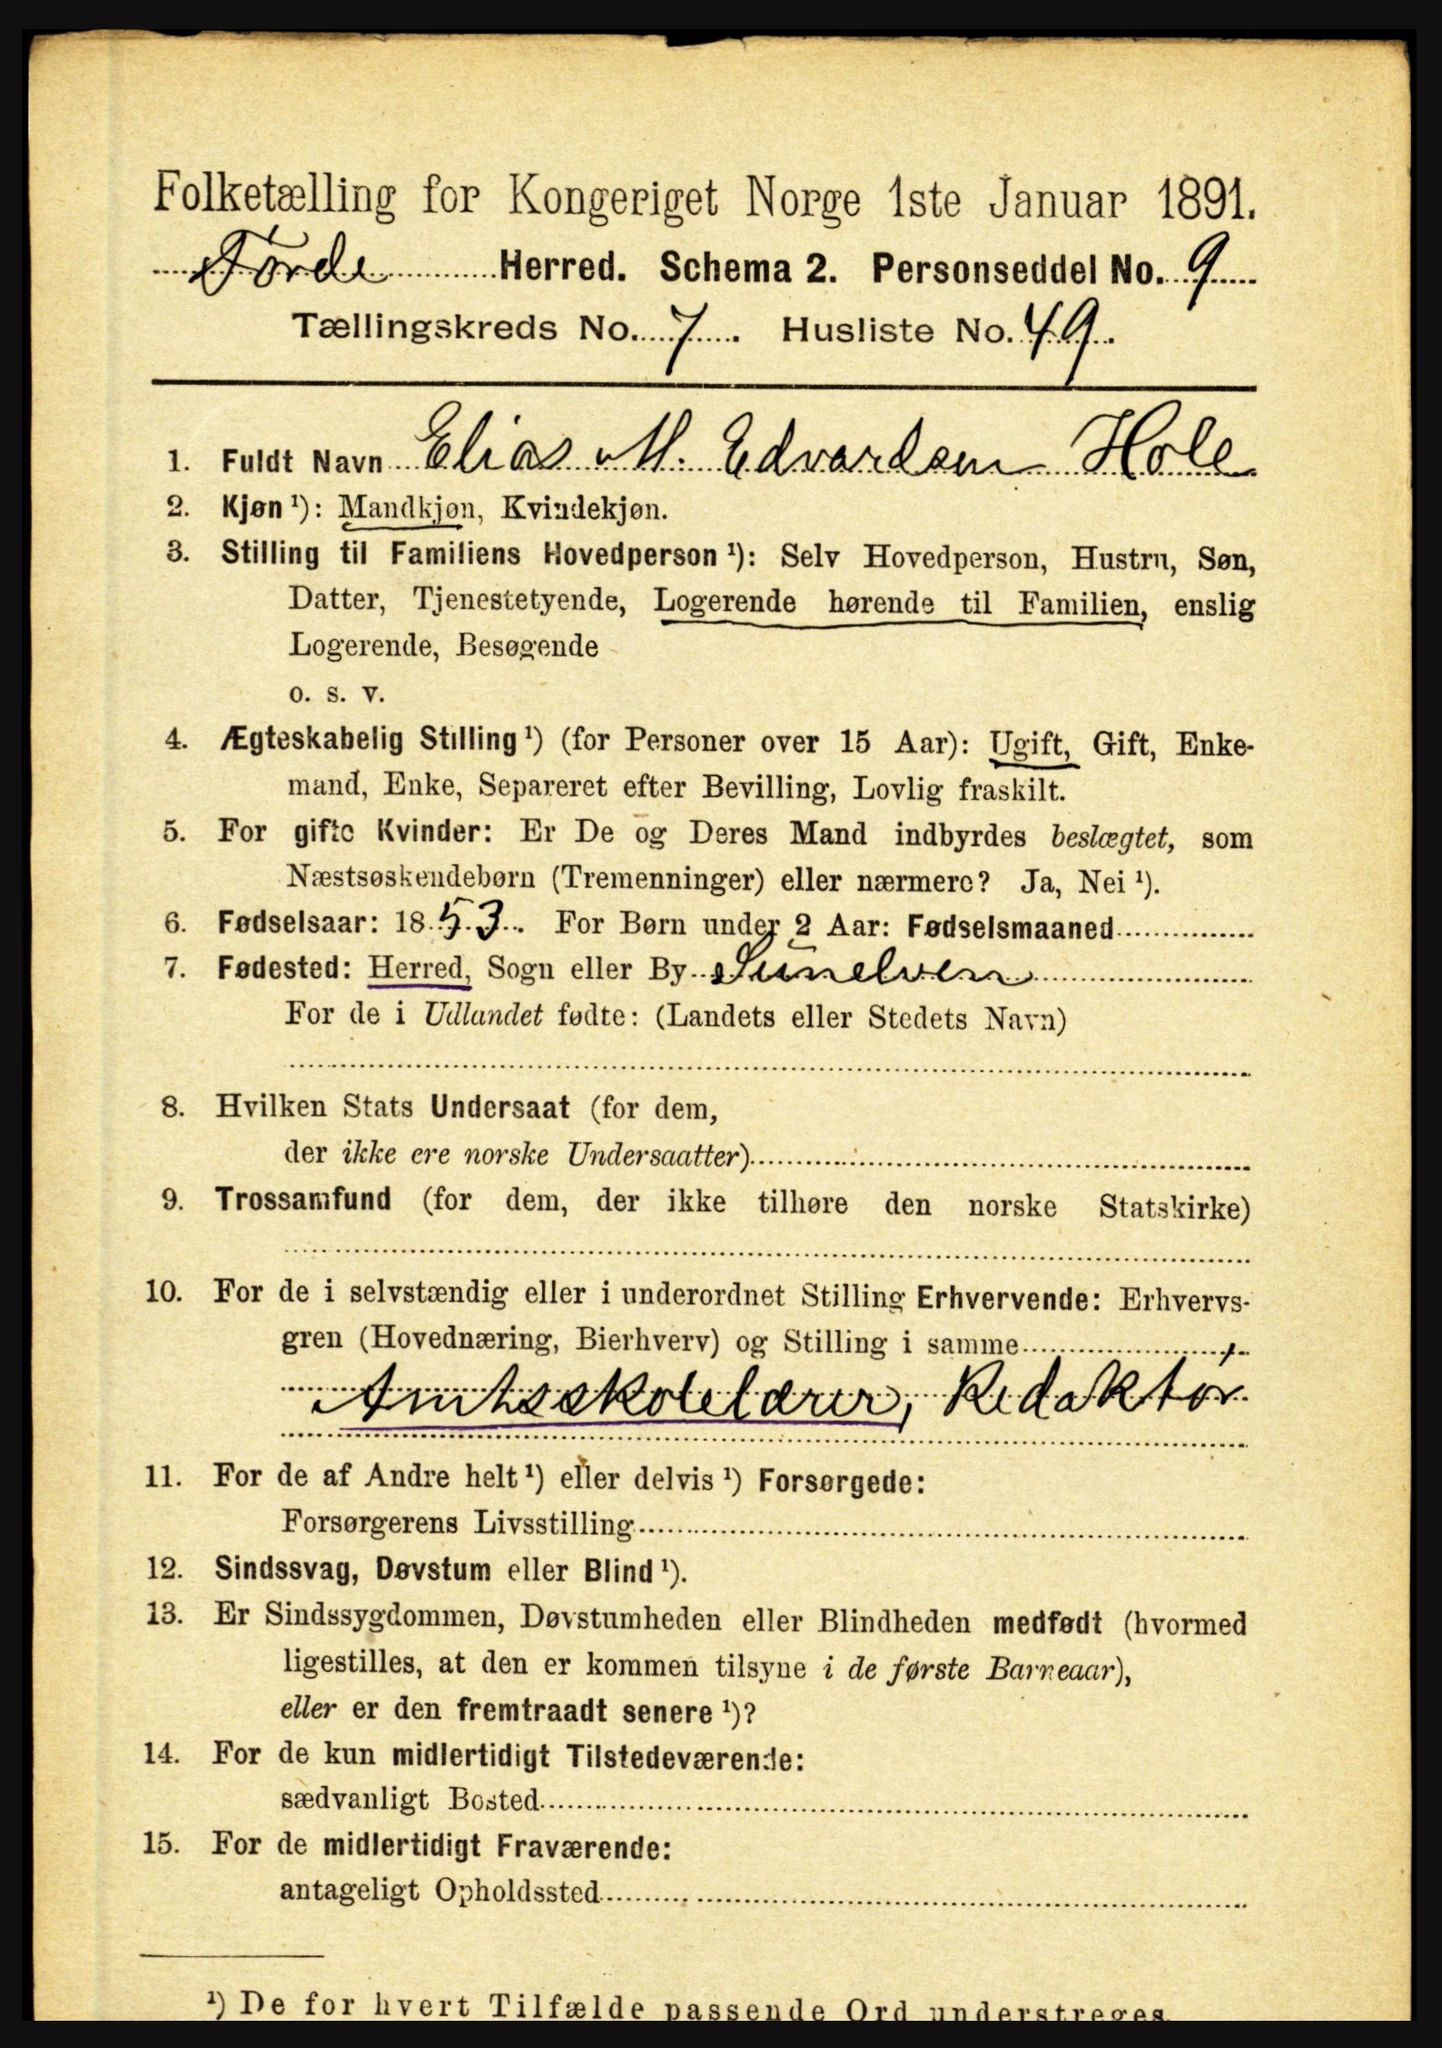 Folketælling for Kongeriget Norge 1ste Januar 1891.
Førde Herred. Schema 2. Personseddel No. 9
Tællingskreds No. 7. Husliste No. 49.
1. Fuldt Navn Elias M. Edvardsen Hole
2. Kjøn ¹): Mandkjøn, Kvindekjøn.
3. Stilling til Familiens Hovedperson ¹): Selv Hovedperson, Hustru, Søn,
Datter, Tjenestetyende, Logerende hørende til Familien, enslig
Logerende, Besøgende
o. s. v.
4. Ægteskabelig Stilling ¹) (for Personer over 15 Aar): Ugift, Gift, Enke-
mand, Enke, Separeret efter Bevilling, Lovlig fraskilt.
5. For gifte Kvinder: Er De og Deres Mand indbyrdes beslægtet, som
Næstsøskendebørn (Tremenninger) eller nærmere? Ja, Nei ¹).
6. Fødselsaar: 1853. For Børn under 2 Aar: Fødselsmaaned
7. Fødested: Herred, Sogn eller By Sunelven
For de i Udlandet fødte: (Landets eller Stedets Navn)
8. Hvilken Stats Undersaat (for dem,
der ikke ere norske Undersaatter)
9. Trossamfund (for dem, der ikke tilhøre den norske Statskirke)
10. For de i selvstændig eller i underordnet Stilling Erhvervende: Erhvervs-
gren (Hovednæring, Bierhverv) og Stilling i samme
Amtsskolelærer, Redaktør
11. For de af Andre helt ¹) eller delvis ¹) Forsørgede:
Forsørgerens Livsstilling
12. Sindssvag, Døvstum eller Blind ¹).
13. Er Sindssygdommen, Døvstumheden eller Blindheden medfødt (hvormed
ligestilles, at den er kommen tilsyne i de første Barneaar),
eller er den fremtraadt senere ¹)?
14. For de kun midlertidigt Tilstedeværende:
sædvanligt Bosted
15. For de midlertidigt Fraværende:
antageligt Opholdssted
¹) De for hvert Tilfælde passende Ord understreges.